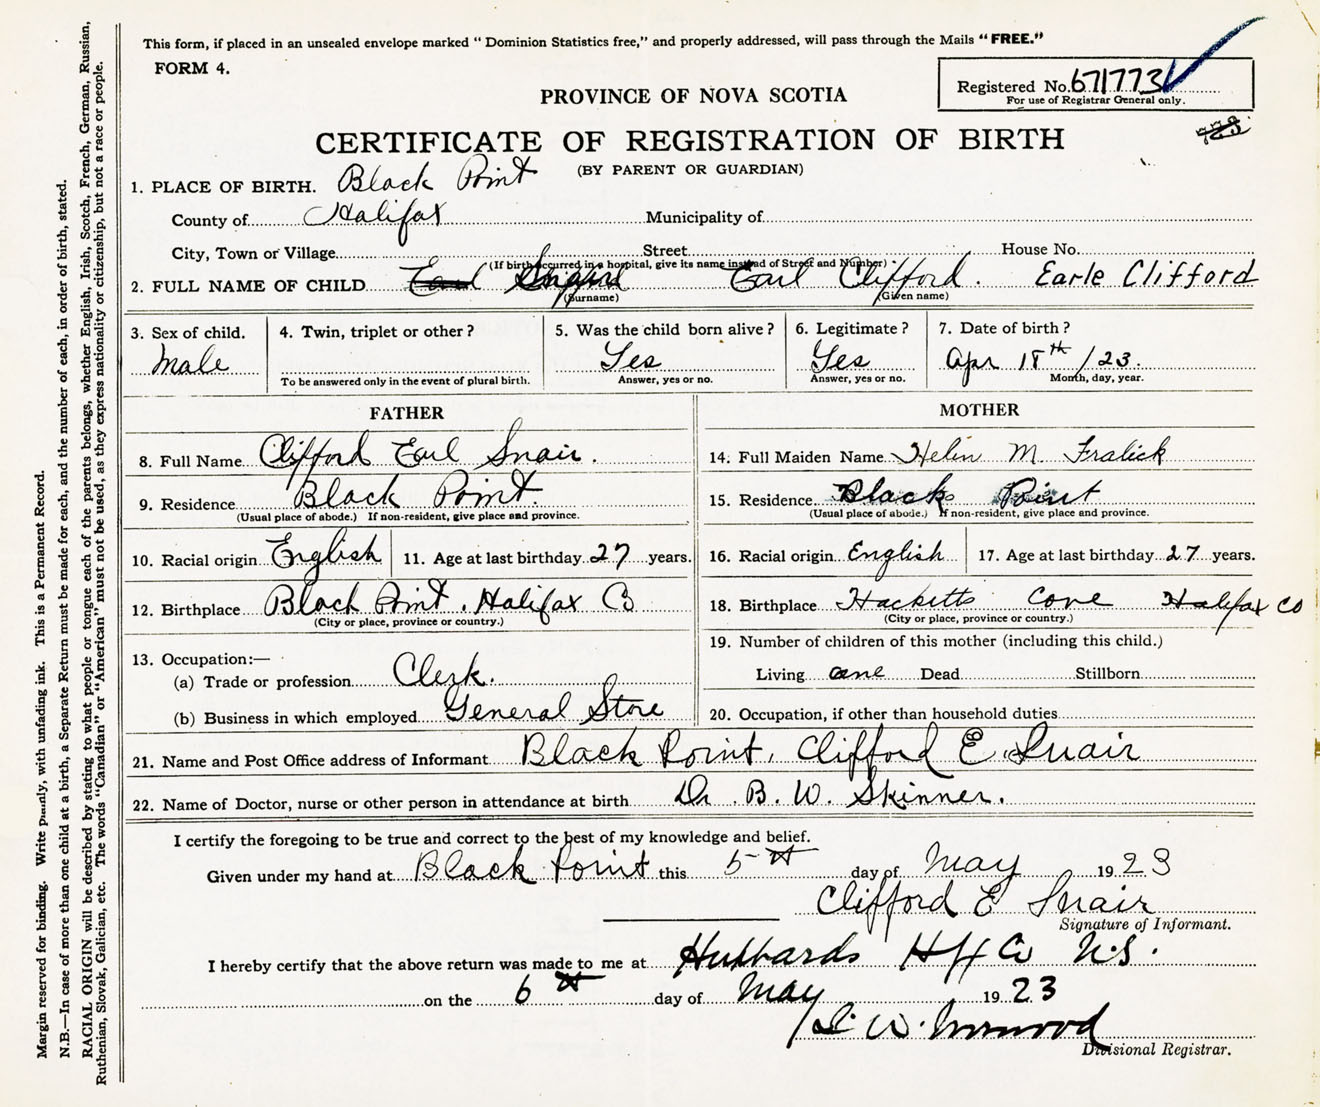 This form, if placed in an unsealed envelope marked "Dominion Statistics free," and properly addressed, will pass through the Mails "FREE."
FORM 4.
Registered No. 671773
For use of Registrar General only.
PROVINCE OF NOVA SCOTIA
CERTIFICATE OF REGISTRATION OF BIRTH
(BY PARENT OR GUARDIAN)
1. PLACE OF BIRTH. Black Point
County of Halifax Municipality of
City, Town or Village Street House No.
(If birth occurred in a hospital, give its name instead of Street and Number)
2. FULL NAME OF CHILD Earl Earl Clifford. Earle Clifford
(Surname) (Given name)
3. Sex of child. 4. Twin, triplet or other? 5. Was the child born alive? 6. Legitimate? 7. Date of birth?
Male Yes Yes Apr 18th /23.
To be answered only in the event of plural birth. Answer, yes or no. Answer, yes or no. Month, day, year.
FATHER MOTHER
8. Full Name Clifford Earl Snair. 14. Full Maiden Name Helen M. Fralick
9. Residence Black Point. 15. Residence Blacks Point
(Usual place of abode.) If non-resident, give place and province. (Usual place of abode.) If non-resident, give place and province.
10. Racial origin English 11. Age at last birthday 27 years. 16. Racial origin English 17. Age at last birthday 27 years.
12. Birthplace Black Point. Halifax Co 18. Birthplace Hacketts Cove Halifax Co
(City or place, province or country.) (City or place, province or country.)
19. Number of children of this mother (including this child.)
13. Occupation:—
(a) Trade or profession Clerk. Living one Dead Stillborn
(b) Business in which employed General Store 20. Occupation, if other than household duties
21. Name and Post Office address of Informant Black Point, Clifford E. Snair
22. Name of Doctor, nurse or other person in attendance at birth Dr. B. W. Skinner.
I certify the foregoing to be true and correct to the best of my knowledge and belief.
Given under my hand at Black Point this 5th day of May 1923
Clifford E Snair
Signature of Informant.
I hereby certify that the above return was made to me at Hubbards Hfx Co N.S.
on the 6th day of May 1923
Divisional Registrar.
Margin reserved for binding. Write plainly, with unfading ink. This is a Permanent Record.
N.B.—In case of more than one child at a birth, a Separate Return must be made for each, and the number of each, in order of birth, stated.
RACIAL ORIGIN will be described by stating to what people or tongue each of the parents belongs, whether English, Irish, Scotch, French, German, Russian,
Ruthenian, Slovak, Galician, etc. The words "Canadian" or "American" must not be used, as they express nationality or citizenship, but not a race or people.